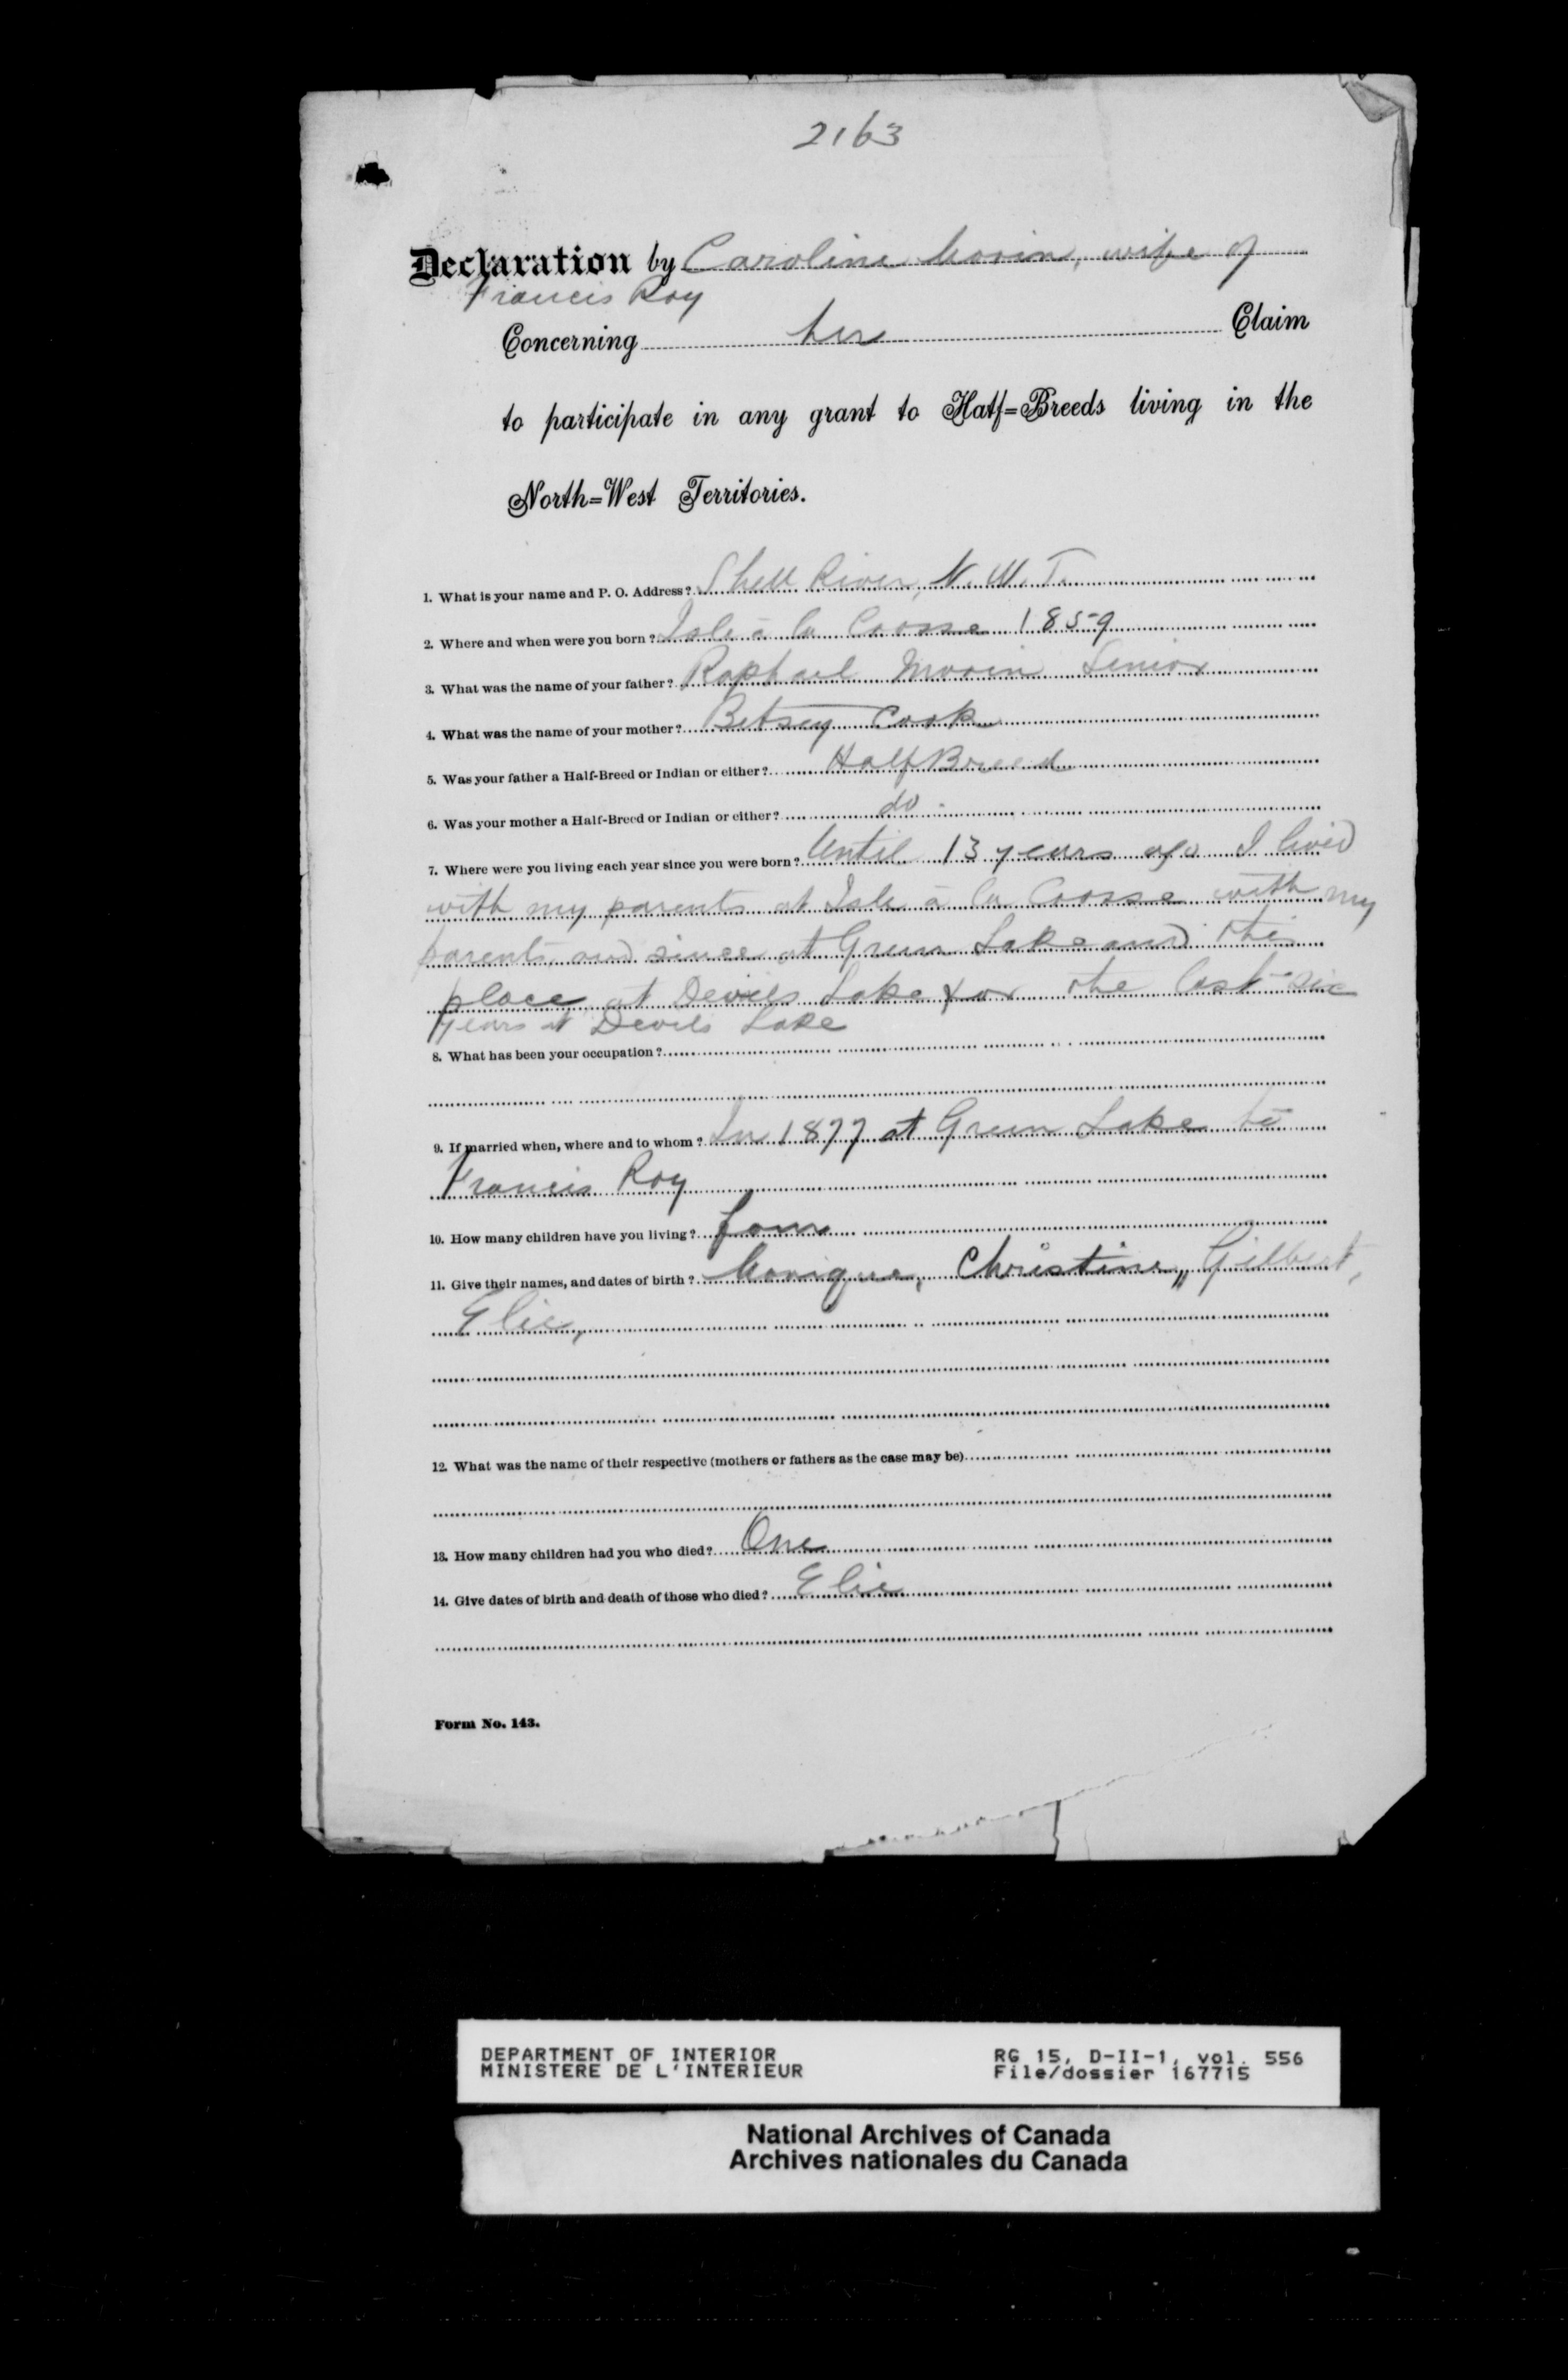 2163
Declaration by Caroline Morin, wife of
Francis Roy
Concerning her Claim
to participate in any grant to Half=Breeds living in the
North=West Territories.
1. What is your name and P. O. Address? Shell River, N. W. T.
2. Where and when were you born? Isle à la Crosse 1859
3. What was the name of your father? Raphael Morin Senior
4. What was the name of your mother? Betsey Cook
5. Was your father a Half-Breed or Indian or either? Half Breed
6. Was your mother a Half-Breed or Indian or either? do.
7. Where were you living each year since you were born? Until 13 years ago I lived
with my parents at Isle à la Crosse with my
parents and since at Green Lake and this
place at Devils Lake for the last six
years at Devils Lake
8. What has been your occupation?
9. If married when, where and to whom? In 1877 at Green Lake to
Francis Roy
10. How many children have you living? four
11. Give their names, and dates of birth? Monique, Christine, Gilbert,
Elie,
12. What was the name of their respective (mothers or fathers as the case may be)
13. How many children had you who died? One
14. Give dates of birth and death of those who died? Elie
Form No. 143.
DEPARTMENT OF INTERIOR RG 15, D-II-1, vol. 556
MINISTERE DE L'INTERIEUR File/dossier 167715
National Archives of Canada
Archives nationales du Canada